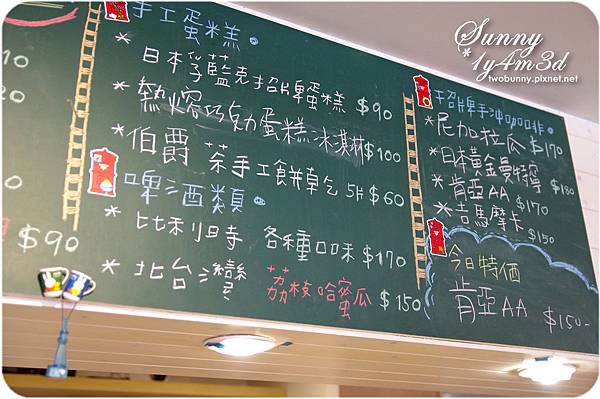 Sunny
*1y4m3d
twobunny.pixnet.net
手工蛋糕。
*日本孚藍克招牌蛋糕 $90
*熱熔巧克力蛋糕冰淇淋$100
*伯爵茶手工餅乾 5片$60
啤酒類。
*比利時 各種口味 $170
*北台灣 荔枝 哈蜜瓜 $150
$90
招牌手沖咖啡。
*尼加拉瓜 $170
*日本黃金曼特寧 $180
*肯亞AA $170
*吉馬摩卡 $150
今日特価
肯亞AA $150-